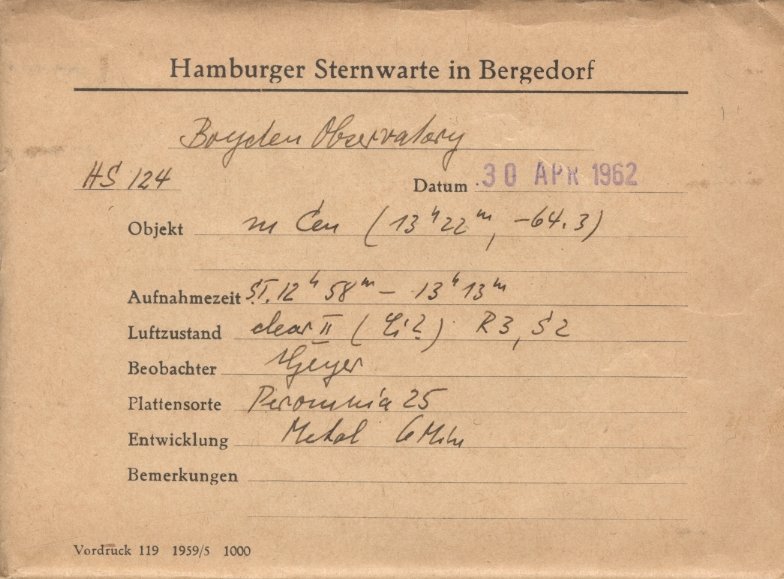 Hamburger Sternwarte in Bergedorf
Boyden Observatory
HS 124
Datum 30 APR 1962
Objekt m Cen (13ʰ22ᵐ, -64.3)
Aufnahmezeit ST. 12ʰ58ᵐ - 13ʰ13ᵐ
Luftzustand clear II (Ci?) R3, S2
Beobachter Geyer
Plattensorte Peromnia 25
Entwicklung Metol 6 Min
Bemerkungen
Vordruck 119 1959/5 1000